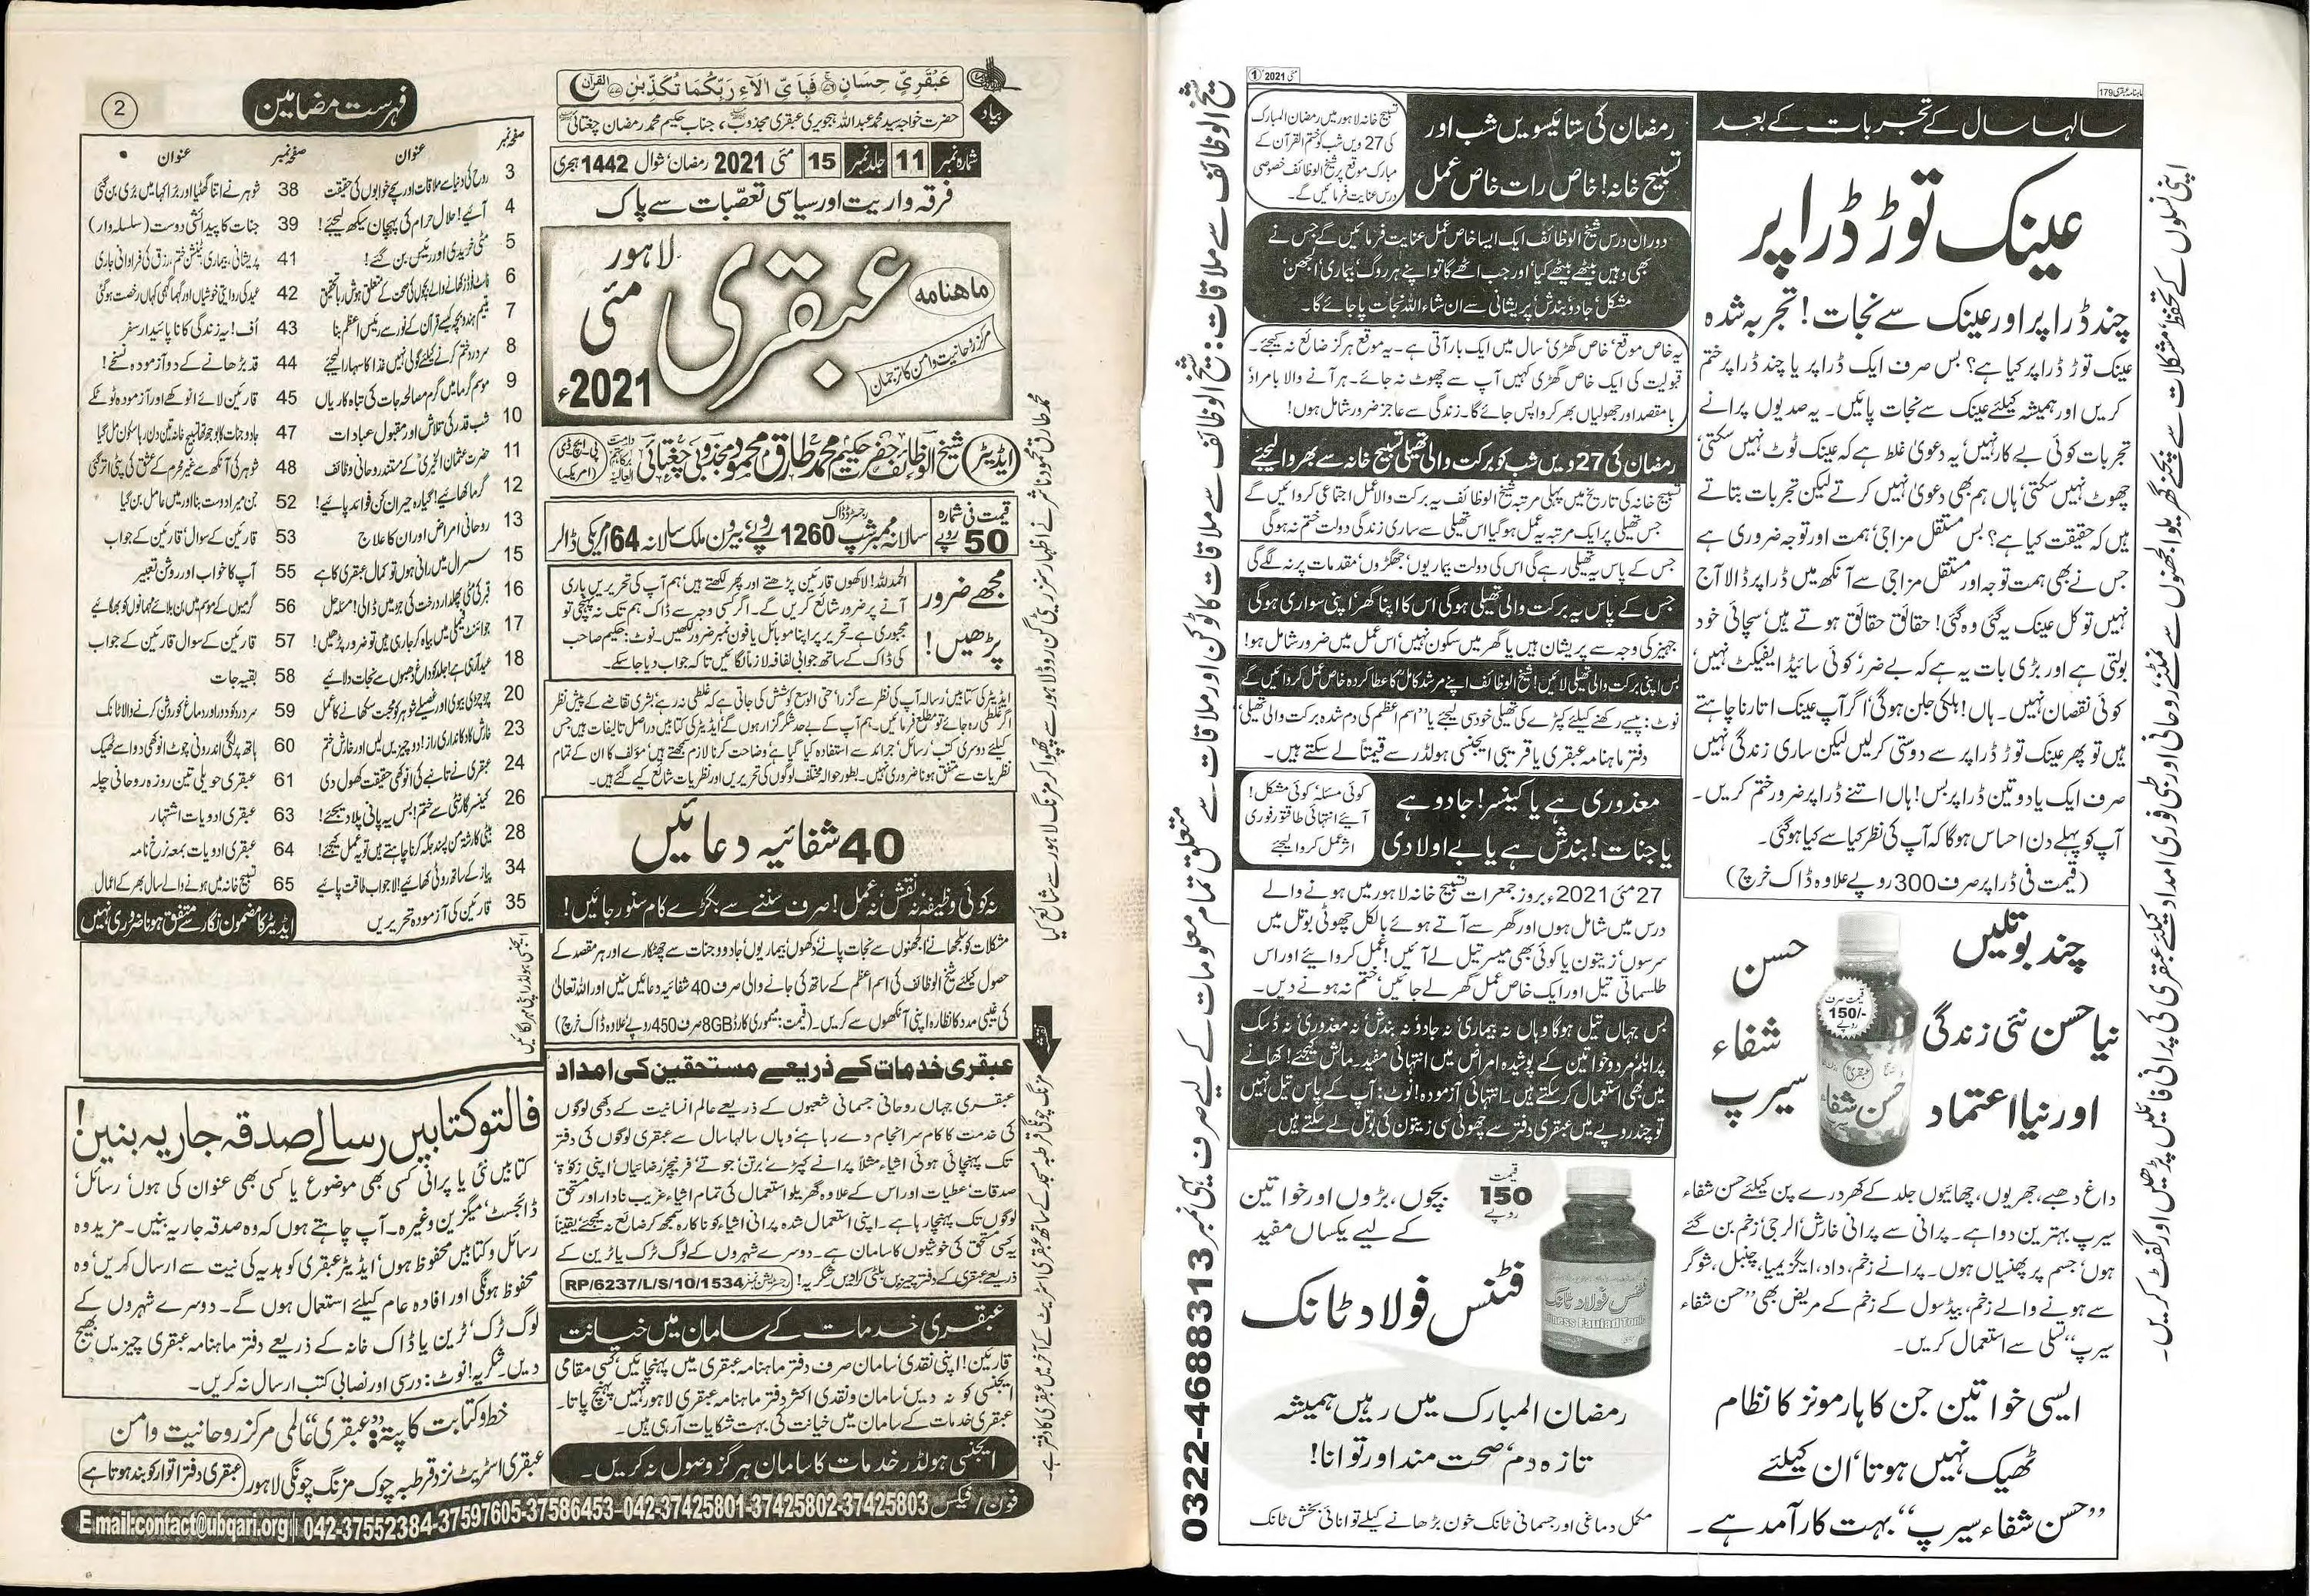 مئی 2021ء 1
ماہنامہ عبقری 179
سالہا سال کے تجربات کے بعد
عینک توڑ ڈراپر
چند ڈراپر اور عینک سے نجات! تجربہ شدہ
عینک توڑ ڈراپر کیا ہے؟ بس صرف ایک ڈراپر یا چند ڈراپر ختم
کریں اور ہمیشہ کیلئے عینک سے نجات پائیں۔ یہ صدیوں پرانے
تجربات کوئی بے کار نہیں‘ یہ دعویٰ غلط ہے کہ عینک ٹوٹ نہیں سکتی‘
چھوٹ نہیں سکتی‘ ہاں ہم بھی دعویٰ نہیں کرتے لیکن تجربات بتاتے
ہیں کہ حقیقت کیا ہے؟ بس مستقل مزاجی‘ ہمت اور توجہ ضروری ہے
جس نے بھی ہمت توجہ اور مستقل مزاجی سے آنکھ میں ڈراپر ڈالا آج
نہیں تو کل عینک یہ گئی وہ گئی! حقائق حقائق ہوتے ہیں‘ سچائی خود
بولتی ہے اور بڑی بات یہ ہے کہ بے ضرر‘ کوئی سائیڈ ایفیکٹ نہیں‘
کوئی نقصان نہیں۔ ہاں! ہلکی جلن ہوگی‘ اگر آپ عینک اتارنا چاہتے
ہیں تو پھر عینک توڑ ڈراپر سے دوستی کرلیں لیکن ساری زندگی نہیں
صرف ایک یا دو تین ڈراپر بس! ہاں اتنے ڈراپر ضرور ختم کریں۔
آپ کو پہلے دن احساس ہوگا کہ آپ کی نظر کیا سے کیا ہوگئی۔
(قیمت فی ڈراپر صرف 300 روپے علاوہ ڈاک خرچ)
چند بوتلیں
نیا حسن نئی زندگی
اور نیا اعتماد
حسن
شفاء
سیرپ
قیمت صرف
150/-
روپے
عبقری
حسن شفاء
سیرپ
داغ دھبے، جھریوں، چھائیوں جلد کے کھردرے پن کیلئے حسن شفاء
سیرپ بہترین دوا ہے۔ پرانی سے پرانی خارش‘ الرجی‘ زخم بن گئے
ہوں‘ جسم پر پھنسیاں ہوں۔ پرانے زخم، داد، ایگزیمیا، چنبل، شوگر
سے ہونے والے زخم، بیڈ سول کے زخم کے مریض بھی ’’حسن شفاء
سیرپ‘‘ تسلی سے استعمال کریں۔
ایسی خواتین جن کا ہارمونز کا نظام
ٹھیک نہیں ہوتا‘ ان کیلئے
’’حسن شفاء سیرپ‘‘ بہت کارآمد ہے۔
اپنی نسلوں کے تحفظ‘ مشکلات سے بچنے‘ گھریلو الجھنوں سے نمٹنے‘ روحانی اور طبی فوری امداد کیلئے عبقری کی پرانی فائلیں پڑھیں اور گفٹ کریں۔
رمضان کی ستائیسویں شب اور
تسبیح خانہ! خاص رات خاص عمل
تسبیح خانہ لاہور میں رمضان المبارک
کی 27 ویں شب کو ختم القرآن کے
مبارک موقع پر شیخ الوظائف خصوصی
درس عنایت فرمائیں گے۔
دوران درس شیخ الوظائف ایک ایسا خاص عمل عنایت فرمائیں گے جس نے
بھی وہیں بیٹھے بیٹھے کیا‘ اور جب اٹھے گا تو اپنے ہر روگ‘ بیماری‘ الجھن‘
مشکل‘ جادو‘ بندش‘ پریشانی سے ان شاء اللہ نجات پا جائے گا۔
یہ خاص موقع‘ خاص گھڑی‘ سال میں ایک بار آتی ہے۔ یہ موقع ہرگز ضائع نہ کیجئے۔
قبولیت کی ایک خاص گھڑی کہیں آپ سے چھوٹ نہ جائے۔ ہر آنے والا بامراد‘
بامقصد اور جھولیاں بھر کر واپس جائے گا۔ زندگی سے عاجز ضرور شامل ہوں!
رمضان کی 27 ویں شب کو برکت والی تھیلی تسبیح خانہ سے بھروا لیجئے
تسبیح خانہ کی تاریخ میں پہلی مرتبہ شیخ الوظائف یہ برکت والا عمل اجتماعی کروائیں گے
جس تھیلی پر ایک مرتبہ یہ عمل ہوگیا اس تھیلی سے ساری زندگی دولت ختم نہ ہوگی
جس کے پاس یہ تھیلی رہے گی اس کی دولت بیماریوں‘ جھگڑوں‘ مقدمات پر نہ لگے گی
جس کے پاس یہ برکت والی تھیلی ہوگی اس کا اپنا گھر‘ اپنی سواری ہوگی
جہیز کی وجہ سے پریشان ہیں یا گھر میں سکون نہیں‘ اس عمل میں ضرور شامل ہو!
بس اپنی برکت والی تھیلی لائیں! شیخ الوظائف اپنے مرشد کامل کا عطا کردہ خاص عمل کروائیں گے
نوٹ: پیسے رکھنے کیلئے کپڑے کی تھیلی خود سی لیجئے یا ’’اسم اعظم کی دم شدہ برکت والی تھیلی‘‘
دفتر ماہنامہ عبقری یا قریبی ایجنسی ہولڈر سے قیمتاً لے سکتے ہیں۔
معذوری ہے یا کینسر! جادو ہے
یا جنات! بندش ہے یا بے اولادی
کوئی مسئلہ‘ کوئی مشکل!
آئیے انتہائی طاقتور فوری
اثر عمل کروا لیجئے
27 مئی 2021ء بروز جمعرات تسبیح خانہ لاہور میں ہونے والے
درس میں شامل ہوں اور گھر سے آتے ہوئے بالکل چھوٹی بوتل میں
سرسوں‘ زیتون یا کوئی بھی میسر تیل لے آئیں! عمل کروائیے اور اس
طلسماتی تیل اور ایک خاص عمل گھر لے جائیں‘ ختم نہ ہونے دیں۔
بس جہاں تیل ہوگا وہاں نہ بیماری‘ نہ جادو‘ نہ بندش‘ نہ معذوری‘ نہ ڈسک
پرابلم‘ مرد و خواتین کے پوشیدہ امراض میں انتہائی مفید۔ مالش کیجئے! کھانے
میں بھی استعمال کرسکتے ہیں۔ انتہائی آزمودہ! نوٹ: آپ کے پاس تیل نہیں
تو چند روپے میں عبقری دفتر سے چھوٹی سی زیتون کی بوتل لے سکتے ہیں۔
قیمت
150
روپے
بچوں، بڑوں اور خواتین
کے لیے یکساں مفید
فٹنس فولاد ٹانک
فٹنس فولاد ٹانک
Fitness Faulad Tonic
رمضان المبارک میں رہیں ہمیشہ
تازہ دم‘ صحت مند اور توانا!
مکمل دماغی اور جسمانی ٹانک خون بڑھانے کیلئے توانائی بخش ٹانک
شیخ الوظائف سے ملاقات: شیخ الوظائف سے ملاقات کا ٹوکن اور ملاقات سے متعلق تمام معلومات کے لیے صرف یہی نمبر 0322-4688313
عَبْقَرِيٍّ حِسَانٍ فَبِأَيِّ آلَاءِ رَبِّكُمَا تُكَذِّبٰنِ القرآن
بیاد
حضرت خواجہ سید محمد عبداللہ ہجویری عبقری مجذوبؒ، جناب حکیم محمد رمضان چغتائیؒ
شمارہ نمبر 11 جلد نمبر 15 مئی 2021 رمضان‘ شوال 1442 ہجری
فرقہ واریت اور سیاسی تعصبات سے پاک
ماہنامہ
عبقری
لاہور
مئی
2021ء
مرکز روحانیت وامن کا ترجمان
ایڈیٹر شیخ الوظائف حضرت حکیم محمد طارق محمود مجذوبی چغتائی دامت برکاتہم العالیہ پی۔ایچ۔ڈی (امریکہ)
قیمت فی شمارہ
50 روپے
سالانہ ممبرشپ رجسٹرڈ ڈاک 1260 روپے، بیرون ملک سالانہ 64 امریکی ڈالر
مجھے ضرور
پڑھیں!
الحمدللہ! لاکھوں قارئین پڑھتے اور پھر لکھتے ہیں‘ ہم آپ کی تحریریں باری
آنے پر ضرور شائع کریں گے۔ اگر کسی وجہ سے ڈاک ہم تک نہ پہنچی تو
مجبوری ہے۔ تحریر پر اپنا موبائل یا فون نمبر ضرور لکھیں۔ نوٹ: حکیم صاحب
کی ڈاک کے ساتھ جوابی لفافہ لازماً لگائیں تاکہ جواب دیا جاسکے۔
ایڈیٹر کی کتابیں‘ رسالہ آپ کی نظر سے گزرا‘ حتی الوسع کوشش کی جاتی ہے کہ غلطی نہ رہے‘ بشری تقاضے کے پیش نظر
اگر غلطی رہ جائے تو مطلع فرمائیں۔ ہم آپ کے بے حد شکر گزار ہوں گے‘ ایڈیٹر کی کتابیں دراصل تالیفات ہیں جس
کیلئے دوسری کتب‘ رسائل‘ جرائد سے استفادہ کیا گیا ہے‘ وضاحت کرنا لازم سمجھتے ہیں‘ مؤلف کا ان کے تمام
نظریات سے متفق ہونا ضروری نہیں۔ بطور حوالہ مختلف لوگوں کی تحریریں اور نظریات شائع کیے گئے ہیں۔
40 شفائیہ دعائیں
نہ کوئی وظیفہ‘ نہ نقش‘ نہ عمل! صرف سننے سے بگڑے کام سنور جائیں!
مشکلات کو سلجھانے‘ الجھنوں سے نجات پانے‘ دکھوں‘ بیماریوں‘ جادو و جنات سے چھٹکارے اور ہر مقصد کے
حصول کیلئے شیخ الوظائف کی اسم اعظم کے ساتھ کی جانے والی صرف 40 شفائیہ دعائیں سنیں اور اللہ تعالیٰ
کی غیبی مدد کا نظارہ اپنی آنکھوں سے کریں۔ (قیمت: میموری کارڈ 8GB صرف 450 روپے علاوہ ڈاک خرچ)
عبقری خدمات کے ذریعے مستحقین کی امداد
عبقری جہاں روحانی جسمانی شعبوں کے ذریعے عالم انسانیت کے دکھی لوگوں
کی خدمت کا کام سرانجام دے رہا ہے‘ وہاں سالہا سال سے عبقری لوگوں کی دفتر
تک پہنچائی ہوئی اشیاء مثلاً پرانے کپڑے‘ برتن‘ جوتے‘ فرنیچر‘ رضائیاں‘ اپنی زکوٰۃ‘
صدقات‘ عطیات اور اس کے علاوہ گھریلو استعمال کی تمام اشیاء غریب نادار اور مستحق
لوگوں تک پہنچا رہا ہے۔ اپنی استعمال شدہ پرانی اشیاء کو ناکارہ سمجھ کر ضائع نہ کیجئے یقیناً
یہ کسی مستحق کی خوشیوں کا سامان ہے۔ دوسرے شہروں کے لوگ ٹرک یا ٹرین کے
ذریعے عبقری کے دفتر چیزیں بلٹی کروا دیں شکریہ! رجسٹریشن نمبر RP/6237/L/S/10/1534
عبقری خدمات کے سامان میں خیانت
قارئین! اپنی نقدی‘ سامان صرف دفتر ماہنامہ عبقری میں پہنچائیں‘ کسی مقامی
ایجنسی کو نہ دیں‘ سامان ونقدی اکثر دفتر ماہنامہ عبقری لاہور نہیں پہنچ پاتا۔
عبقری خدمات کے سامان میں خیانت کی بہت شکایات آرہی ہیں۔
ایجنسی ہولڈر خدمات کا سامان ہرگز وصول نہ کریں۔
محمد طارق محمود ناشر نے اظہار سنز ریٹی گن روڈ لاہور سے چھپوا کر مزنگ لاہور سے شائع کیا
نقشہ
مزنگ چونگی قرطبہ مسجد کے ساتھ عبقری اسٹریٹ کے آخر میں عبقری کا دفتر ہے۔
فہرست مضامین
2
صفحہ نمبر عنوان صفحہ نمبر عنوان
3 روح کی دنیا سے ملاقات اور سچے خوابوں کی حقیقت
4 آئیے! حلال حرام کی پہچان سیکھ لیجئے!
5 مٹی خریدی اور رئیس بن گئے!
6 فاسٹ فوڈز کھانے والے بچوں کی صحت کے متعلق ہوش ربا تحقیق
7 یتیم ہندو بچہ کیسے قرآن کے نور سے رئیس اعظم بنا
8 سردرد ختم کرنے کیلئے گولی نہیں غذا کا سہارا لیجئے
9 موسم گرما میں گرم مصالحہ جات کی تباہ کاریاں
10 شب قدر کی تلاش اور مقبول عبادات
11 حضرت عثمان الخیریؒ کے مستند روحانی وظائف
12 گرما کھائیے! گیارہ حیران کن فوائد پائیے!
13 روحانی امراض اور ان کا علاج
15 سسرال میں رانی ہوں تو کمال عبقری کا ہے
16 قبر کی مٹی پھلدار درخت کی جڑ میں ڈالی! مسئلہ حل
17 جوائنٹ فیملی میں بیاہ کر جارہی ہیں تو ضرور پڑھیں!
18 عید آرہی ہے! جلد کو داغ دھبوں سے نجات دلائیے
20 چڑچڑی بیوی اور غصیلے شوہر کو محبت سکھانے کا عمل
23 خارش کا دکانداری راز! دو چیزیں لیں اور خارش ختم
24 عبقری نے تانبے کی انوکھی حقیقت کھول دی
26 کینسر گارنٹی سے ختم! بس یہ پانی پلا دیجئے!
28 بیٹی کا رشتہ من پسند جگہ کرنا چاہتے ہیں تو یہ عمل کیجئے!
34 پیاز کے ساتھ روٹی کھائیے! لاجواب طاقت پائیے
35 قارئین کی آزمودہ تحریریں
38 شوہر نے اتنا گھٹیا اور برا کہا میں بری بن گئی
39 جنات کا پیدائشی دوست (سلسلہ وار)
41 پریشانی، بیماری، ٹینشن ختم، رزق کی فراوانی جاری
42 عید کی روایتی خوشیاں اور گہما گہمی کہاں رخصت ہوگئی
43 اُف! یہ زندگی کا ناپائیدار سفر
44 قد بڑھانے کے دو آزمودہ نسخے!
45 قارئین لائے انوکھے اور آزمودہ ٹوٹکے
47 جادو جنات کا بوجھ تھا تسبیح خانہ تین دن رہا سکون مل گیا
48 شوہر کی آنکھ سے غیر محرم کے عشق کی پٹی اتر گئی
52 جن میرا دوست بنا اور میں عامل بن گیا
53 قارئین کے سوال‘ قارئین کے جواب
55 آپ کا خواب اور روشن تعبیر
56 گرمیوں کے موسم میں بن بلائے مہمانوں کو بھگائیے
57 قارئین کے سوال قارئین کے جواب
58 بقیہ جات
59 سردرد کو دور اور دماغ کو روشن کرنے والا ٹانک
60 ہاتھ پر لگی اندرونی چوٹ انوکھی دوا سے ٹھیک
61 عبقری حویلی تین روزہ روحانی چلہ
63 عبقری ادویات اشتہار
64 عبقری ادویات بمعہ نرخ نامہ
65 تسبیح خانہ میں ہونے والے سال بھر کے اعمال
ایڈیٹر کا مضمون نگار سے متفق ہونا ضروری نہیں
ایجنسی ہولڈر اپنی مہر لگائیں
فالتو کتابیں رسالے صدقہ جاریہ بنیں!
کتابیں نئی یا پرانی کسی بھی موضوع یا کسی بھی عنوان کی ہوں‘ رسائل‘
ڈائجسٹ‘ میگزین وغیرہ۔ آپ چاہتے ہوں کہ وہ صدقہ جاریہ بنیں۔ مزید وہ
رسائل وکتابیں محفوظ ہوں‘ ایڈیٹر عبقری کو ہدیہ کی نیت سے ارسال کریں‘ وہ
محفوظ ہونگی اور افادہ عام کیلئے استعمال ہوں گے۔ دوسرے شہروں کے
لوگ ٹرک‘ ٹرین یا ڈاک خانہ کے ذریعے دفتر ماہنامہ عبقری چیزیں بھیج
دیں۔ شکریہ! نوٹ: درسی اور نصابی کتب ارسال نہ کریں۔
خط وکتابت کا پتہ: ’’عبقری‘‘ عالمی مرکز روحانیت وامن
عبقری اسٹریٹ نزد قرطبہ چوک مزنگ چونگی لاہور (عبقری دفتر اتوار کو بند ہوتا ہے)
فون/فیکس 042-37425801-37425802-37425803
042-37552384-37597605-37586453
E-mail:contact@ubqari.org